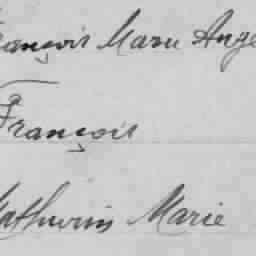 François Marie Ange
François
Mathurin Marie